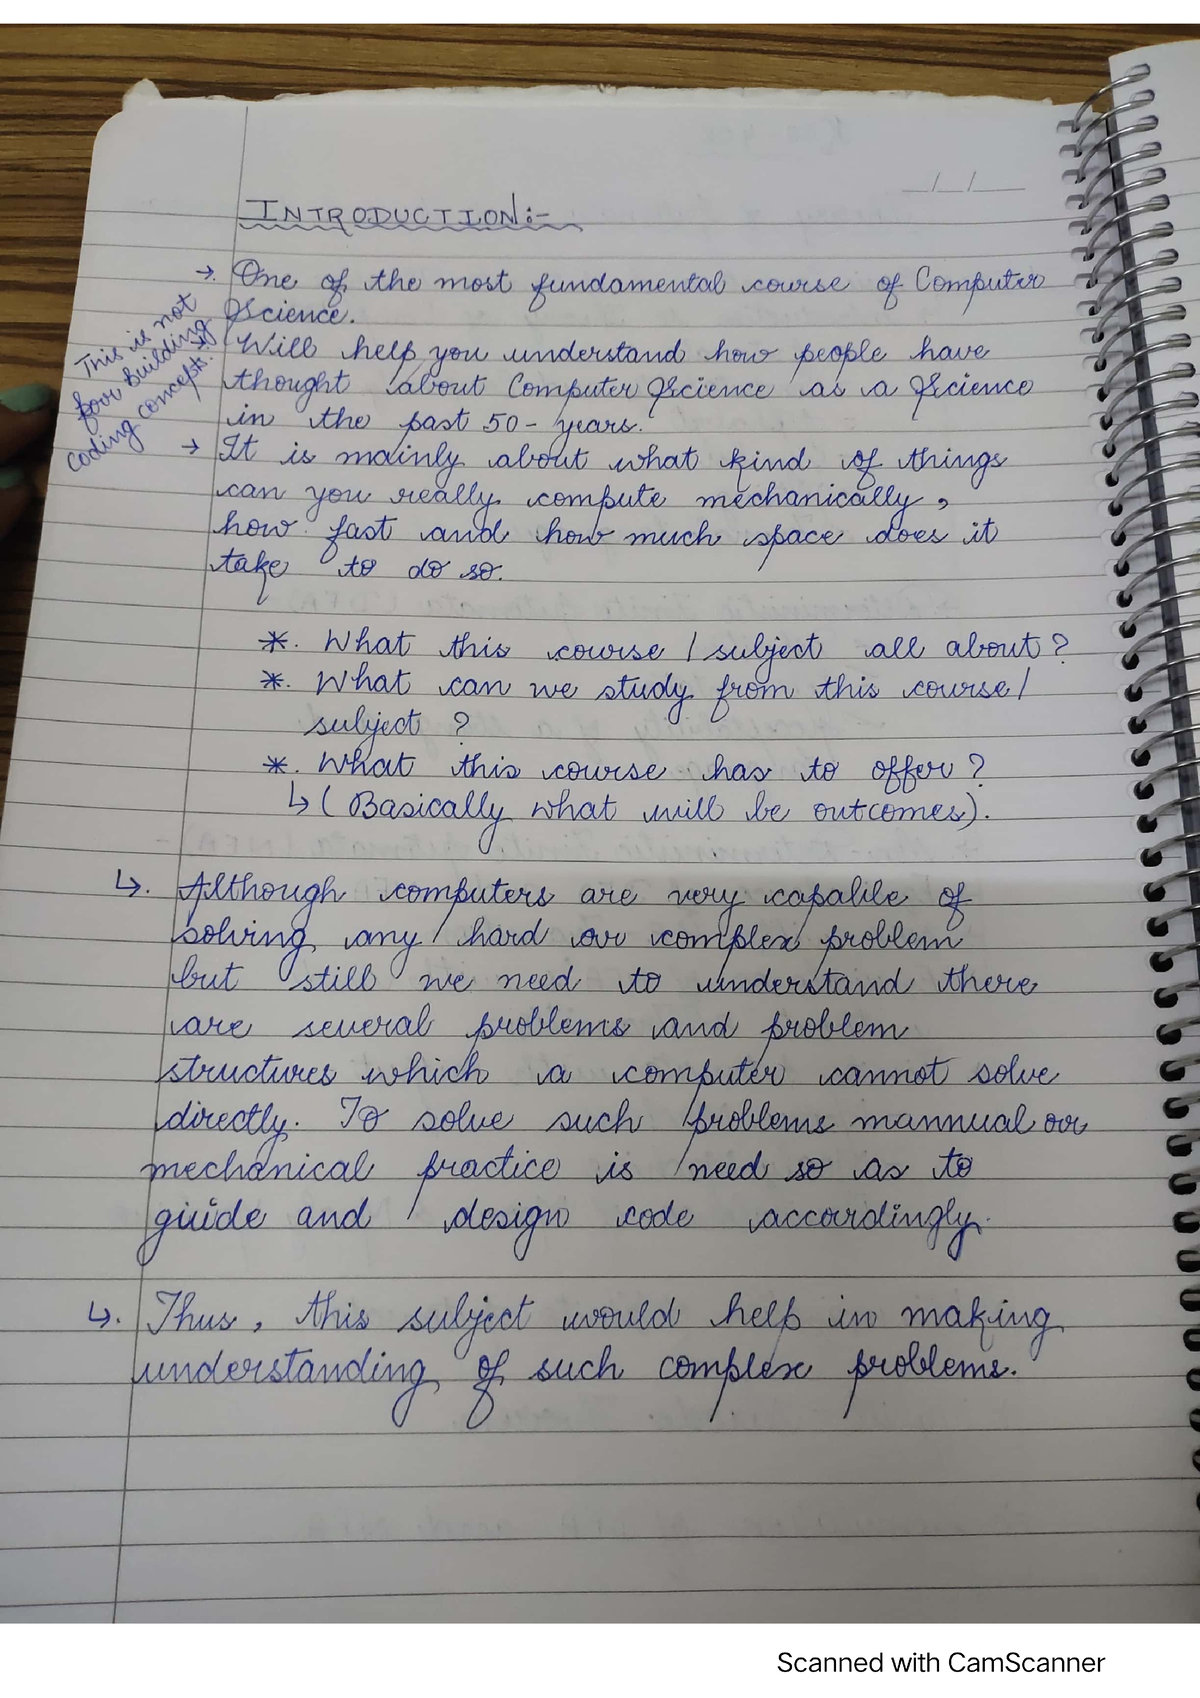 __/__/____
INTRODUCTION:-
→. One of the most fundamental course of Computer
Science.
This is not
for building
coding concepts.
→. Will help you understand how people have
thought about Computer Science as a Science
in the past 50- years.
→ It is mainly about what kind of things
can you really compute mechanically,
how fast and how much space does it
take to do so.
*. What this course / subject all about?
*. What can we study from this course /
subject ?
*. What this course has to offer?
↳ (Basically what will be outcomes).
↳. Although computers are very capable of
solving any hard or complex problem
but still we need to understand there
are several problems and problem
structures which a computer cannot solve
directly. To solve such problems mannual or
mechanical practice is need so as to
guide and design code accordingly.
↳. Thus, this subject would help in making
understanding of such complex problems.
Scanned with CamScanner